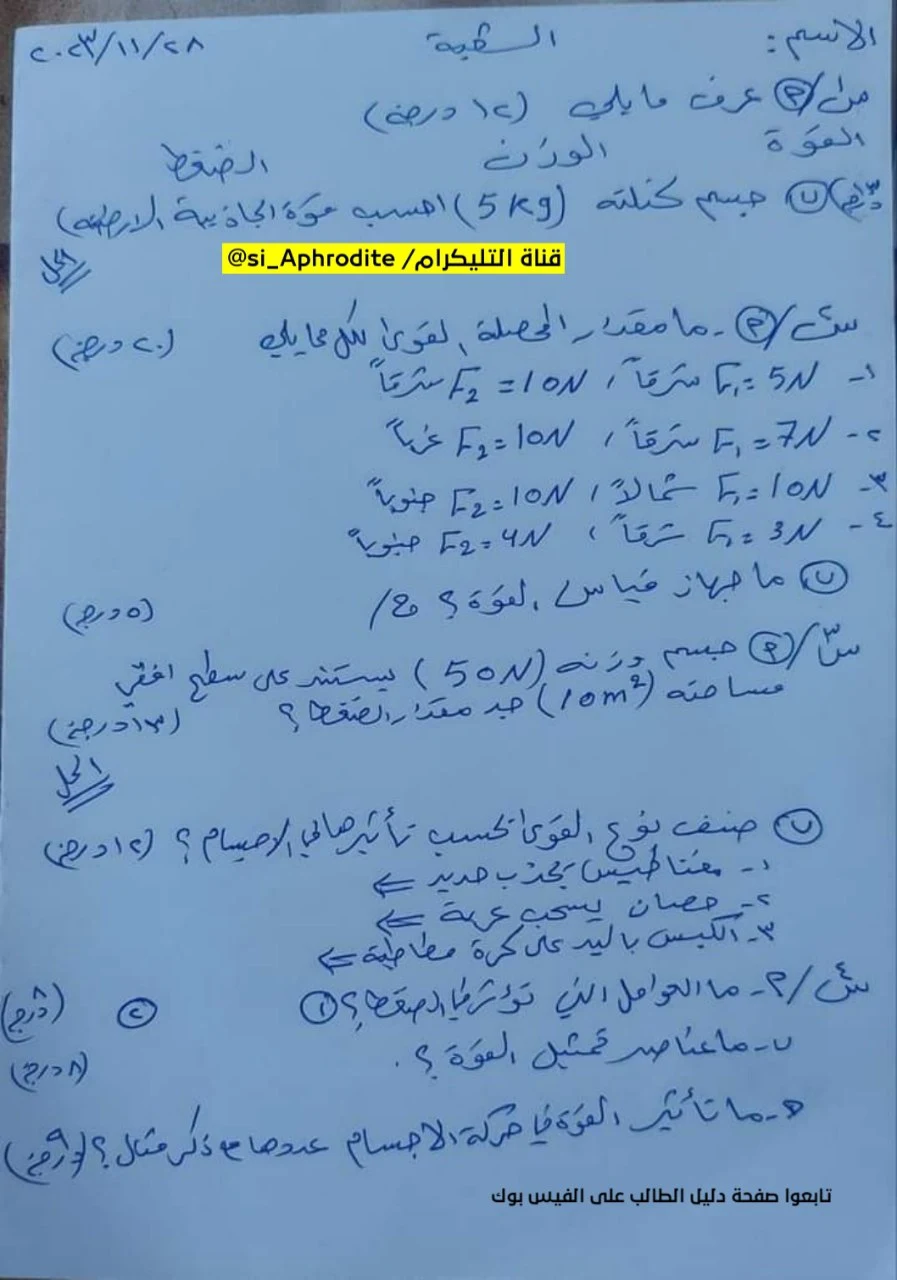 الاسم: الشعبة ٢٠٢٣/١١/٢٨
س١/ P عرف ما يلي (١٢ درجة)
القوة الوزن الضغط
ب) جسم كتلته (5kg) احسب قوة الجاذبية الارضية)
قناة التليكرام/ @si_Aphrodite
الحل
س٢/ P - ما مقدار المحصلة القوى لكل مما يلي (٢٠ درجة)
١- F₁ = 5N شرقاً، F₂ = 10N شرقاً
٢- F₁ = 7N شرقاً، F₂ = 10N غرباً
٣- F₁ = 10N شمالاً، F₂ = 10N جنوباً
٤- F₁ = 3N شرقاً، F₂ = 4N جنوباً
ب) ما جهاز قياس القوة؟ ج/ (٥ درجة)
س٣/ P جسم وزنه (50N) يستند على سطح افقي
مساحته (10m²) جد مقدار الضغط؟ (١٣ درجة)
الحل
ب) صنف نوع القوى بحسب تأثيرها في الاجسام؟ (١٢ درجة)
١- مغناطيس يجذب حديد ⇐
٢- حصان يسحب عربة ⇐
٣- الكبس باليد على كرة مطاطية ⇐
س٤/ P- ما العوامل التي تؤثر في الضغط؟ ① ② (٨ درجة)
ب- ما عناصر تمثيل القوة؟ (٨ درجة)
ح- ما تأثير القوة في حركة الاجسام عددها مع ذكر مثال؟ (٩ درجة)
تابعوا صفحة دليل الطالب على الفيس بوك